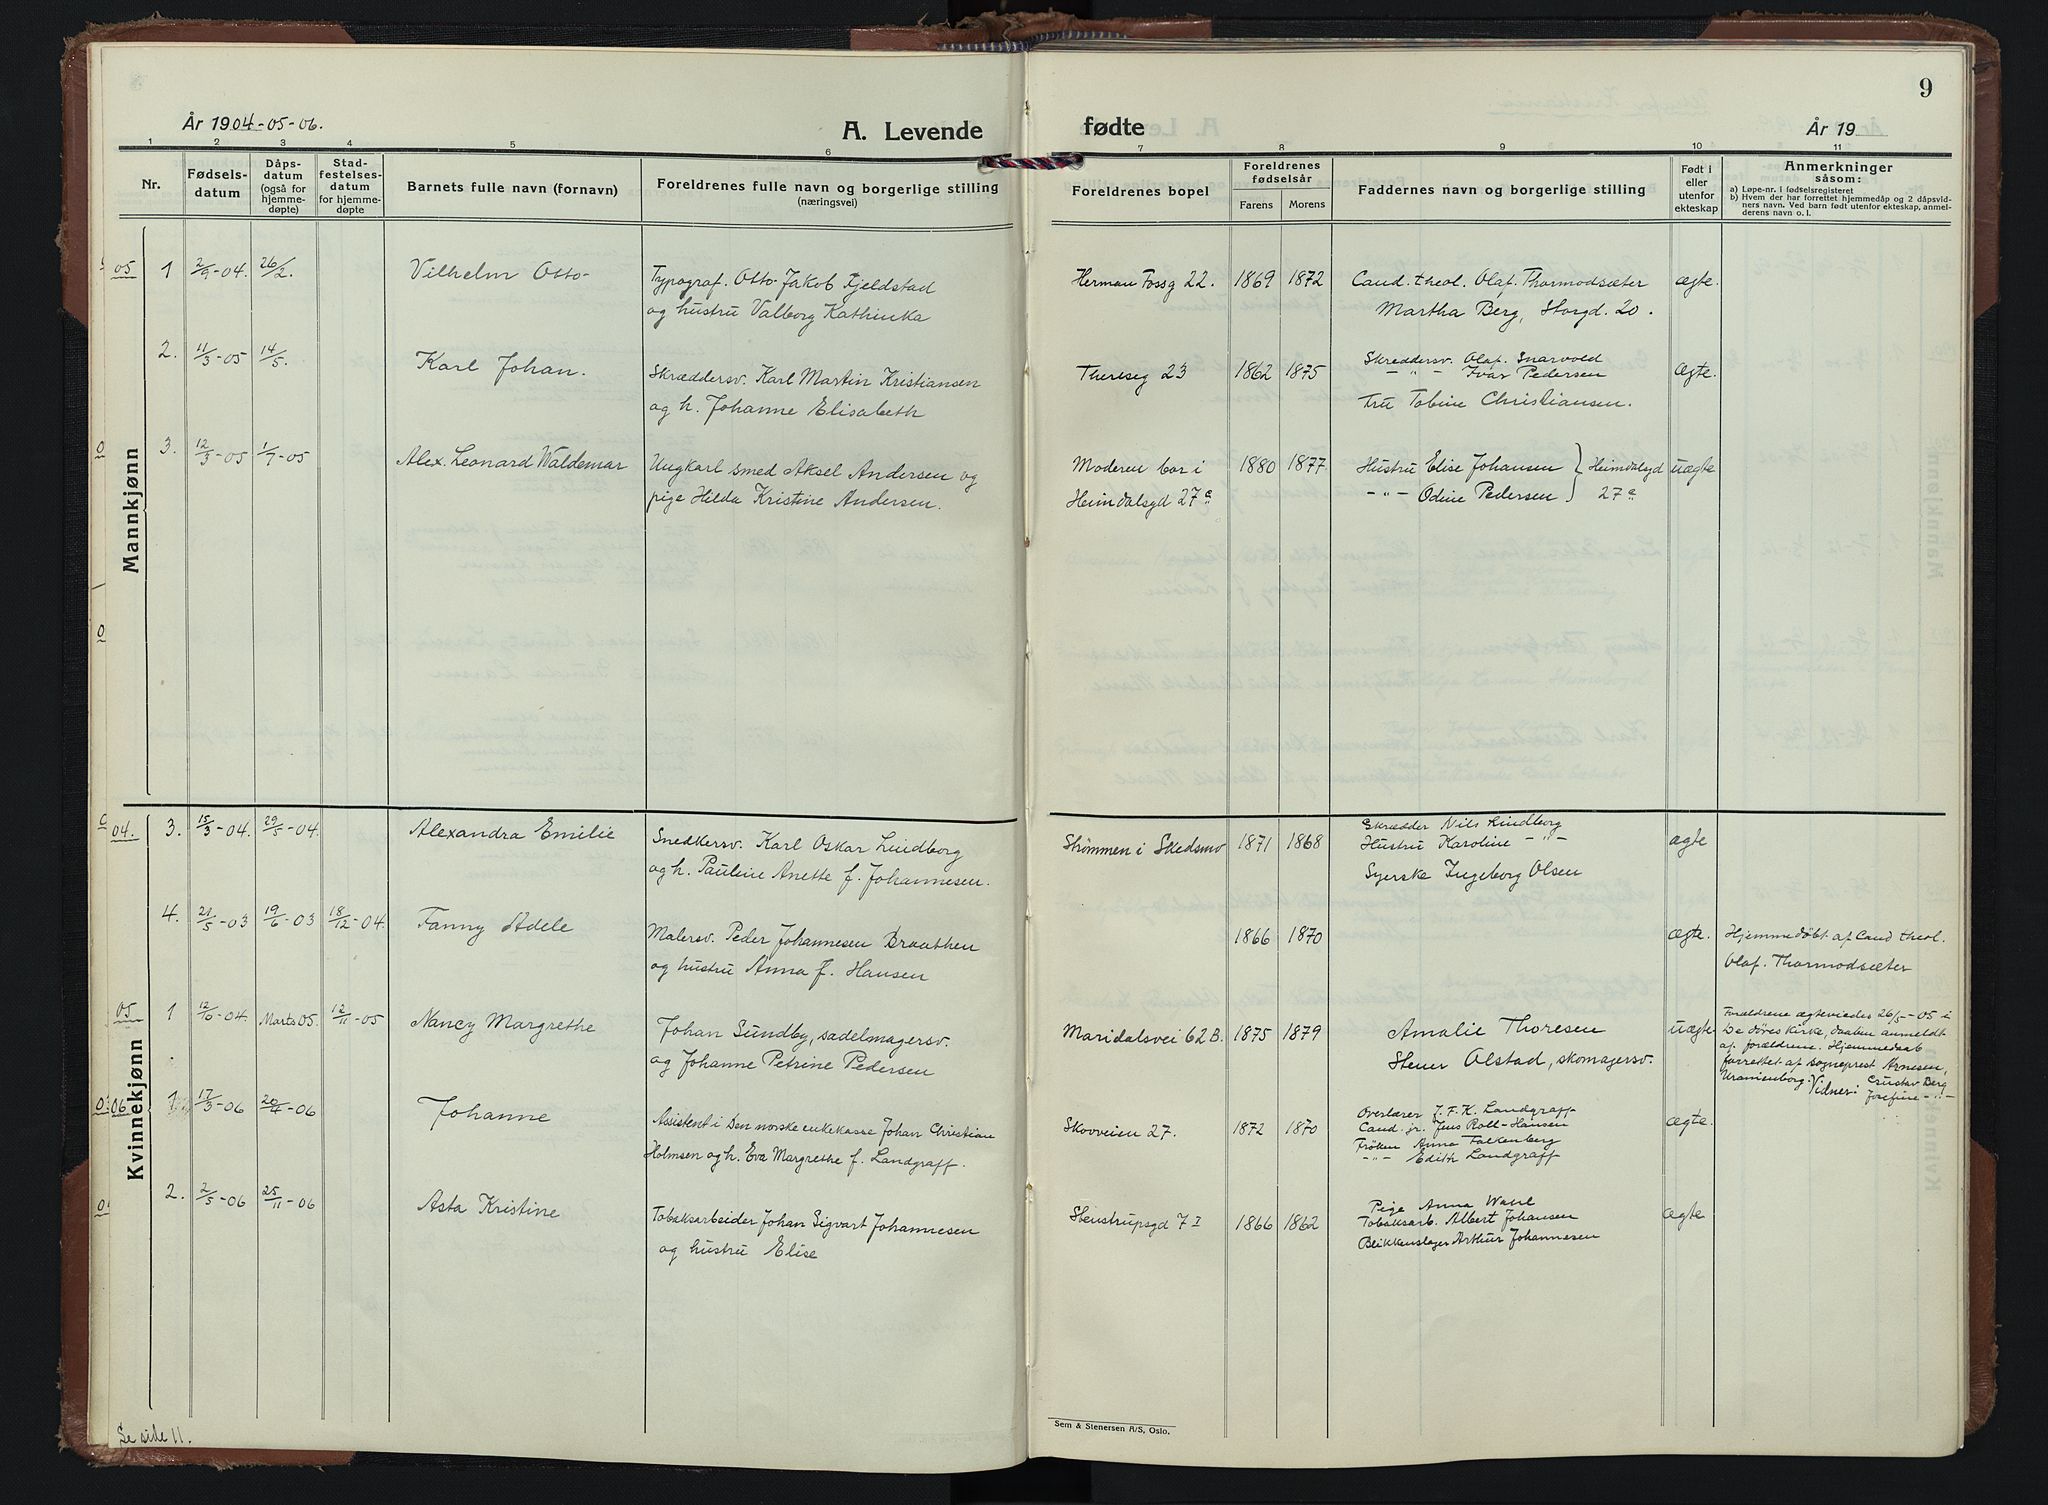 9
År 1904-05-06.
A. Levende
fødte
År 19
1 2 3 4 5 6 7 8 9 10 11
Nr.
Fødsels-
datum
Dåps-
datum
(også for
hjemme-
døpte)
Stad-
festelses-
datum
for hjemme-
døpte
Barnets fulle navn (fornavn)
Foreldrenes fulle navn og borgerlige stilling
(næringsvei)
Foreldrenes bopel
Foreldrenes
fødselsår
Farens Morens
Faddernes navn og borgerlige stilling
Født i
eller
utenfor
ekteskap
Anmerkninger
såsom:
a) Løpe-nr. i fødselsregisteret
b) Hvem der har forrettet hjemmedåp og 2 dåpsvid-
ners navn. Ved barn født utenfor ekteskap, anmel-
derens navn o. l.
Mannkjønn
05 1 2/9-04. 26/2. Vilhelm Otto
Typograf. Otto Jakob Kjeldstad
og hustru Valborg Kathinka
Herman Fossg 22. 1869 1872
Cand. theol. Olaf. Thormodsæter
Martha Berg, Storgd. 20.
ægte.
2. 11/3-05 14/5. Karl Johan.
Skræddersv. Karl Martin Kristiansen
og h. Johanne Elisabeth
Thereseg 23 1862 1875
Skreddersv. Olaf. Snarvold
-"- Ivar Pedersen
Fru Tobine Christiansen.
ægte.
3. 12/3-05 1/7-05 Alex. Leonard Waldemar
Ungkarl smed Aksel Andersen og
pige Hilda Kristine Andersen.
Moderen bor i
Heimdalsgd 27c
1880 1877
Hustru Elise Johansen } Heimdalsgd
-"- Odine Pedersen } 27c
uægte
Kvinnekjønn
04. 3. 15/3-04. 29/5-04. Alexandra Emilie
Snedkersv. Karl Oskar Lindborg
og h. Pauline Anette f. Johannesen.
Strømmen i Skedsmo 1871 1868
Skrædder Nils Lindborg
Hustru Karoline -"-
Syerske Ingeborg Olsen
ægte
4. 21/5-03 19/6-03 18/12-04. Fanny Adele
Malersv. Peder Johannesen Braathen
og hustru Anna f. Hansen
1866 1870
ægte.
Hjemmedøbt af Cand theol.
Olaf. Thormodsæter
05 1 12/6-04. Marts 05. 12/11-05 Nancy Margrethe
Johan Sundby, sadelmagersv.
og Johanne Petrine Pedersen
Maridalsvei 62 B. 1875 1879
Amalie Thoresen
Stener Olstad, skomagersv.
uægte
Forældrene ægteviedes 26/5-05 i
De døves kirke, daaben anmeldt
af forældrene. Hjemmedaab
forrettet af sogneprest Arnesen,
Uranienborg. Vidner: Gustav Berg
Josefine -"-
06 1 17/3-06 20/4-06 Johanne
Assistent i Den norske enkekasse Johan Christian
Holmsen og h. Eva Margrethe f. Landgraff.
Skovveien 27. 1872 1870
Overlærer J. F. K. Landgraff
Cand. jr. Jens Roll-Hansen
Frøken Anna Falkenberg
-"- Edith Landgraff
ægte.
2. 2/5-06 25/11-06 Asta Kristine
Tobaksarbeider Johan Sigvart Johannesen
og hustru Elise
Stenstrupsgd 7 I 1866 1862
Pige Anna Wahl
Tobaksarb. Albert Johansen
Blikkenslager Arthur Johannesen
ægte
Se side 11.
Sem & Stenersen A/S, Oslo.